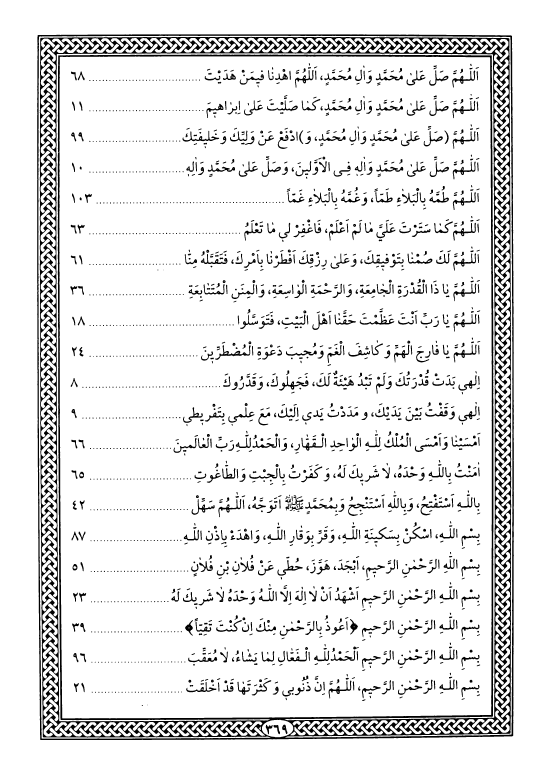 اَللّٰهُمَّ صَلِّ عَلىٰ مُحَمَّدٍ وَاٰلِ مُحَمَّدٍ، اَللّٰهُمَّ اهْدِنٰا فيمَنْ هَدَيْتَ ........ ٦٨
اَللّٰهُمَّ صَلِّ عَلىٰ مُحَمَّدٍ وَاٰلِ مُحَمَّدٍ، كَمٰا صَلَّيْتَ عَلىٰ اِبْراهيمَ ........ ١١
اَللّٰهُمَّ (صَلِّ عَلىٰ مُحَمَّدٍ وَاٰلِ مُحَمَّدٍ، وَ)ادْفَعْ عَنْ وَلِيِّكَ وَخَليفَتِكَ ........ ٩٩
اَللّٰهُمَّ صَلِّ عَلىٰ مُحَمَّدٍ وَاٰلِهِ فِى الْاَوَّلينَ، وَصَلِّ عَلىٰ مُحَمَّدٍ وَاٰلِهِ ........ ١٠
اَللّٰهُمَّ طُمَّهُ بِالْبَلاٰءِ طَمّاً، وَغُمَّهُ بِالْبَلاٰءِ غَمّاً ........ ١٠٣
اَللّٰهُمَّ كَمٰا سَتَرْتَ عَلَيَّ مٰا لَمْ اَعْلَمْ، فَاغْفِرْ لي مٰا تَعْلَمُ ........ ٦٣
اَللّٰهُمَّ لَكَ صُمْنٰا بِتَوْفيقِكَ، وَعَلىٰ رِزْقِكَ اَفْطَرْنٰا بِاَمْرِكَ، فَتَقَبَّلْهُ مِنّٰا ........ ٦١
اَللّٰهُمَّ يٰا ذَا الْقُدْرَةِ الْجٰامِعَةِ، وَالرَّحْمَةِ الْوٰاسِعَةِ، وَالْمِنَنِ الْمُتَتٰابِعَةِ ........ ٣٦
اَللّٰهُمَّ يٰا رَبِّ اَنْتَ عَظَّمْتَ حَقَّنٰا اَهْلَ الْبَيْتِ، فَتَوَسَّلُوا ........ ١٨
اَللّٰهُمَّ يٰا فٰارِجَ الْهَمِّ وَ كٰاشِفَ الْغَمِّ وَمُجيبَ دَعْوَةِ الْمُضْطَرّينَ ........ ٢٤
اِلٰهي بَدَتْ قُدْرَتُكَ وَلَمْ تَبْدُ هَيْئَةٌ لَكَ، فَجَهِلُوكَ، وَقَدَّرُوكَ ........ ٨
اِلٰهي وَقَفْتُ بَيْنَ يَدَيْكَ، و مَدَدْتُ يَدي اِلَيْكَ، مَعَ عِلْمي بِتَفْريطي ........ ٩
اَمْسَيْنٰا وَاَمْسَى الْمُلْكُ لِلّٰهِ الْوٰاحِدِ الْقَهّٰارِ، وَالْحَمْدُ لِلّٰهِ رَبِّ الْعٰالَمينَ ........ ٦٦
اٰمَنْتُ بِاللّٰهِ وَحْدَهُ، لاٰ شَريكَ لَهُ، وَ كَفَرْتُ بِالْجِبْتِ وَالطّٰاغُوتِ ........ ٦٥
بِاللّٰهِ اَسْتَفْتِحُ، وَبِاللّٰهِ اَسْتَنْجِحُ وَبِمُحَمَّدٍ ﷺ اَتَوَجَّهُ، اَللّٰهُمَّ سَهِّلْ ........ ٤٢
بِسْمِ اللّٰهِ، اسْكُنْ بِسَكينَةِ اللّٰهِ، وَقَرِّ بِوَقٰارِ اللّٰهِ، وَاهْدَءْ بِاِذْنِ اللّٰهِ ........ ٨٧
بِسْمِ اللّٰهِ الرَّحْمٰنِ الرَّحيمِ، اَبْجَدَ، هَوَّزَ، حُطّي عَنْ فُلاٰنِ بْنِ فُلاٰنٍ ........ ٥١
بِسْمِ اللّٰهِ الرَّحْمٰنِ الرَّحيمِ اَشْهَدُ اَنْ لاٰ اِلٰهَ اِلَّا اللّٰهُ وَحْدَهُ لاٰ شَريكَ لَهُ ........ ٢٣
بِسْمِ اللّٰهِ الرَّحْمٰنِ الرَّحيمِ ﴿اَعُوذُ بِالرَّحْمٰنِ مِنْكَ اِنْ كُنْتَ تَقِيّاً﴾ ........ ٣٩
بِسْمِ اللّٰهِ الرَّحْمٰنِ الرَّحيمِ اَلْحَمْدُ لِلّٰهِ الْفَعّٰالِ لِمٰا يَشٰاءُ، لاٰ مُعَقِّبَ ........ ٩٦
بِسْمِ اللّٰهِ الرَّحْمٰنِ الرَّحيمِ، اَللّٰهُمَّ اِنَّ ذُنُوبي وَ كَثْرَتَهٰا قَدْ اَخْلَقَتْ ........ ٢١
٣٦٩